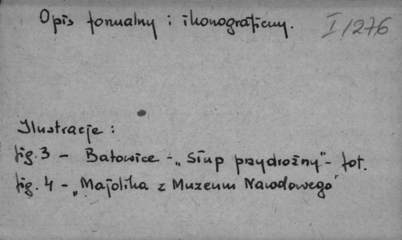 Opis formalny i ikonograficzny.
I/1276
Ilustracje:
fig. 3 - Batowice - „Słup przydrożny" - fot.
fig. 4 - „Majolika z Muzeum Narodowego"